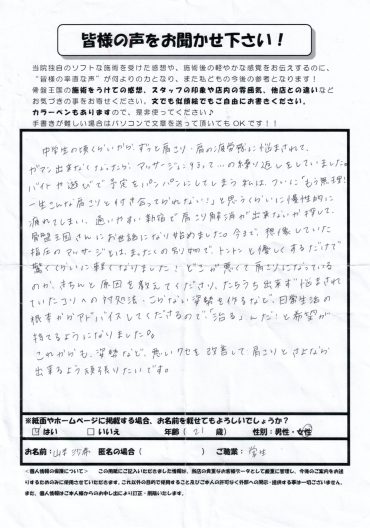 皆様の声をお聞かせ下さい！
当院独自のソフトな施術を受けた感想や、施術後の軽やかな感覚をお伝えするのに、
“皆様の率直な声”が何よりの力となり、また私どもの今後の参考となります！
骨盤王国の施術をうけての感想、スタッフの印象や店内の雰囲気、他店との違いなど
お気づきの事をお寄せください。文でも似顔絵でもご自由にお書きください。
カラーペンもありますので、是非使ってください♪
手書きが難しい場合はパソコンで文章を送って頂いてもOKです！！
中学生の頃くらいから、ずっと肩こり・肩の疲労感に悩まされて、
ガマン出来なくなったらマッサージに行って…の繰り返しをしていました。
バイトや遊びで予定をパンパンにしてしまう私は、ついに「もう無理！
一生こんな肩こりと付き合ってられない！」と思うくらいに慢性的に
疲れてしまい、通いやすい新宿で肩こり解消が出来ないか探して、
骨盤王国さんにお世話になり始めました。今まで、想像していた
指圧のマッサージとは、まったくの別物で、トントンと優しくするだけで
驚くくらいに軽くなりました！どこが悪くて肩こりになっている
のか、きちんと原因を教えてくださり、
ていたコリへの対処法・こりがない姿勢を作るなど、日常生活の
根本からアドバイスしてくださるので、「治る」んだ！と希望が
持てるようになりました。
これからも、姿勢など、悪いクセを改善して肩こりとさよなら
出来るよう頑張りたいです。
※紙面やホームページに掲載する場合、お名前を載せてもよろしいでしょうか？
☑はい □いいえ 年齢（21歳） 性別：男性・女性
お名前：山本 匿名の場合（ ） ご職業：学生
＜個人情報の保障について＞ この用紙にご記入いただきました情報は、当店の貴重なお客様データとして厳重に管理し、今後のご案内をお送
りするためのみに使用させていただきます。これ以外の目的で使用すること及びご本人の許可なく外部への開示・提供する事は一切ございません。
また、個人情報はご本人様からのお申し出により訂正・削除いたします。